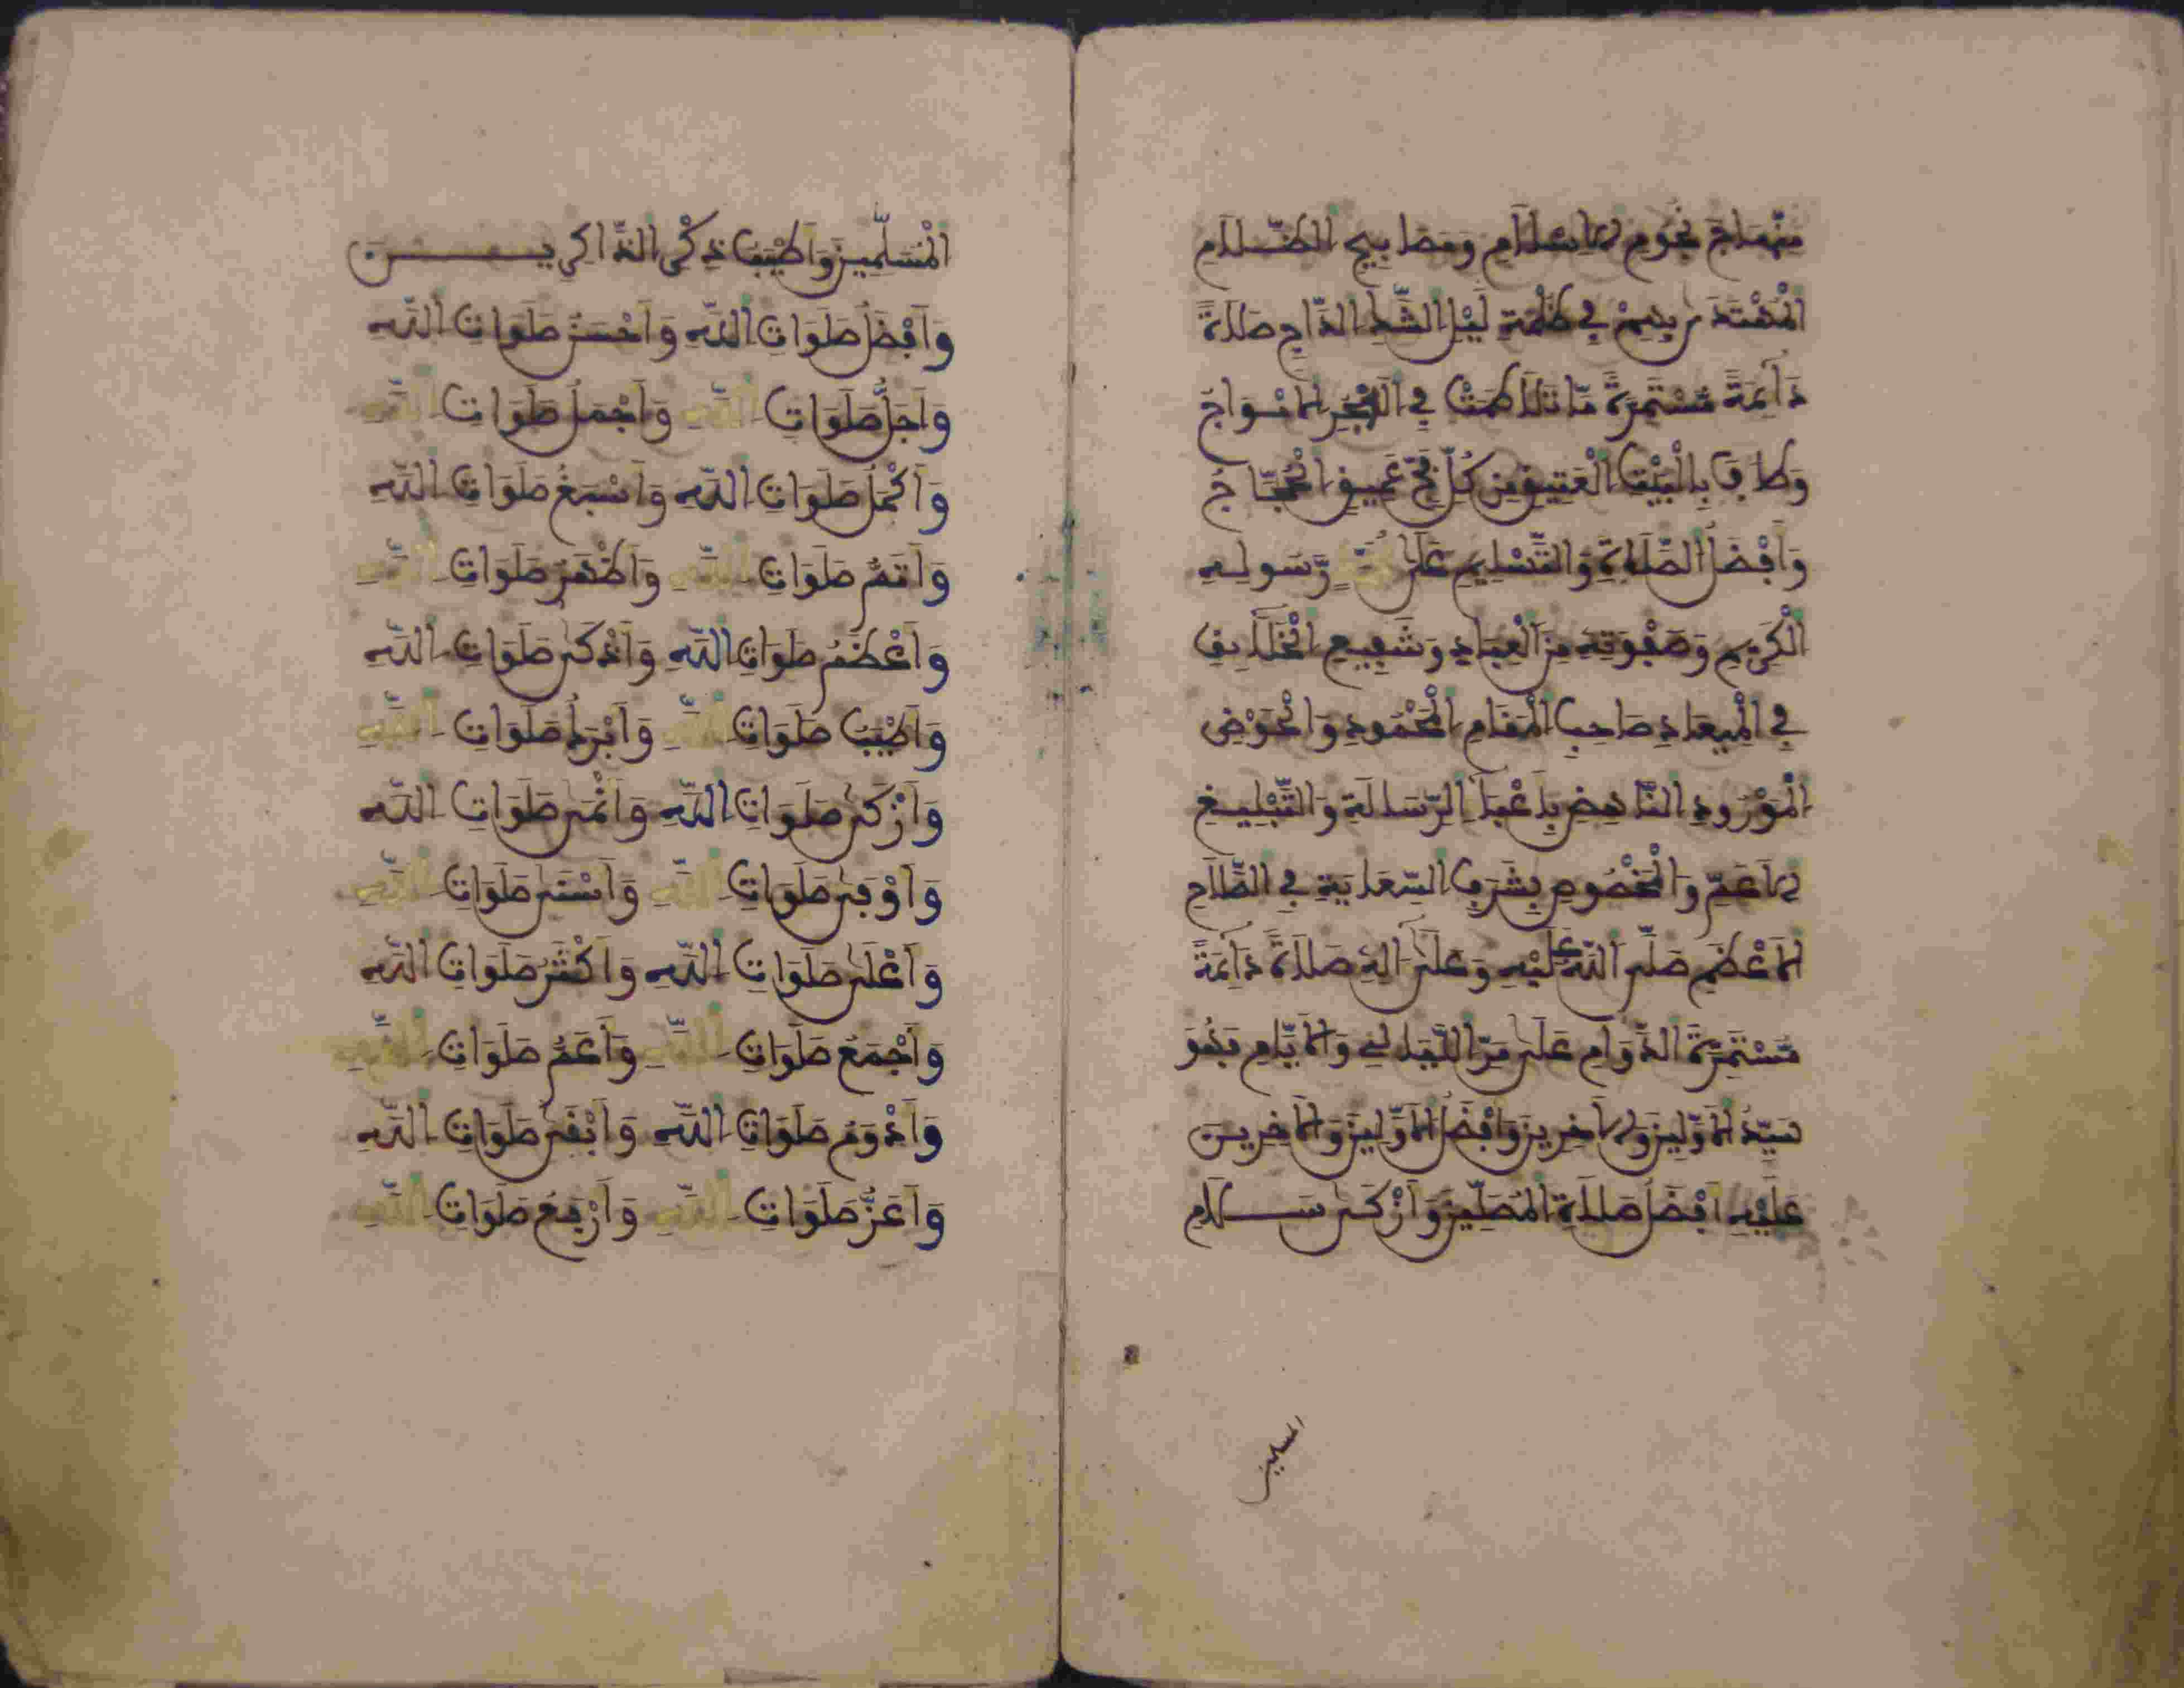 مِنْهَاجِ نُجُومِ الِاسْلَامِ وَمَصَابِيحِ الظَّلَامِ
الْمُهْتَدَى بِهِمْ فِي ظُلْمَةِ لَيْلِ الشَّكِّ الدَّاجِ صَلَاةً
دَآئِمَةً مُّسْتَمِرَّةً مَّا تَلَاطَمَتْ فِي الَابْحُرِ الَامْوَاجُ
وَطَافَ بِالْبَيْتِ الْعَتِيقِ مِن كُلِّ فَجٍّ عَمِيقٍ الْحُجَّاجُ
وَأَفْضَلُ الصَّلَاةِ وَالتَّسْلِيمِ عَلَى مُحَمَّدٍ رَّسُولِهِ
الْكَرِيمِ وَصَفْوَتِهِ مِنَ الْعِبَادِ وَشَفِيعِ الْخَلَآئِقِ
فِي الْمِيعَادِ صَاحِبِ الْمَقَامِ الْمَحْمُودِ وَالْحَوْضِ
الْمَوْرُودِ النَّاهِضِ بِأَعْبَآءِ الرِّسَالَةِ وَالتَّبْلِيغِ
الَاعَمِّ وَالْمَخْصُوصِ بِشَرَفِ السِّعَايَةِ فِي الصَّلَاحِ
الَاعْظَمِ صَلَّى اللَّهُ عَلَيْهِ وَعَلَى آلِهِ صَلَاةً دَآئِمَةً
مُّسْتَمِرَّةَ الدَّوَامِ عَلَى مَرِّ اللَّيَالِي وَالَايَّامِ فَهُوَ
سَيِّدُ الَاوَّلِينَ وَالَاخِرِينَ وَأَفْضَلُ الَاوَّلِينَ وَالَاخِرِينَ
عَلَيْهِ أَفْضَلُ صَلَاةِ الْمُصَلِّينَ وَأَزْكَى سَلَامِ
المسلمين
الْمُسَلِّمِينَ وَأَطْيَبُ ذِكْرِ الذَّاكِرِينَ
وَأَفْضَلُ صَلَوَاتِ اللَّهِ وَأَحْسَنُ صَلَوَاتِ اللَّهِ
وَأَجَلُّ صَلَوَاتِ اللَّهِ وَأَجْمَلُ صَلَوَاتِ اللَّهِ
وَأَكْمَلُ صَلَوَاتِ اللَّهِ وَأَسْبَغُ صَلَوَاتِ اللَّهِ
وَأَتَمُّ صَلَوَاتِ اللَّهِ وَأَظْهَرُ صَلَوَاتِ اللَّهِ
وَأَعْظَمُ صَلَوَاتِ اللَّهِ وَأَذْكَى صَلَوَاتِ اللَّهِ
وَأَطْيَبُ صَلَوَاتِ اللَّهِ وَأَبْرَكُ صَلَوَاتِ اللَّهِ
وَأَزْكَى صَلَوَاتِ اللَّهِ وَأَنْمَى صَلَوَاتِ اللَّهِ
وَأَوْفَى صَلَوَاتِ اللَّهِ وَأَسْنَى صَلَوَاتِ اللَّهِ
وَأَعْلَى صَلَوَاتِ اللَّهِ وَأَكْثَرُ صَلَوَاتِ اللَّهِ
وَأَجْمَعُ صَلَوَاتِ اللَّهِ وَأَعَمُّ صَلَوَاتِ اللَّهِ
وَأَدْوَمُ صَلَوَاتِ اللَّهِ وَأَبْقَى صَلَوَاتِ اللَّهِ
وَأَعَزُّ صَلَوَاتِ اللَّهِ وَأَرْفَعُ صَلَوَاتِ اللَّهِ